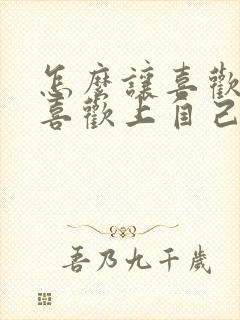 怎麼讓喜歡
喜歡上自己
吾乃九千歲